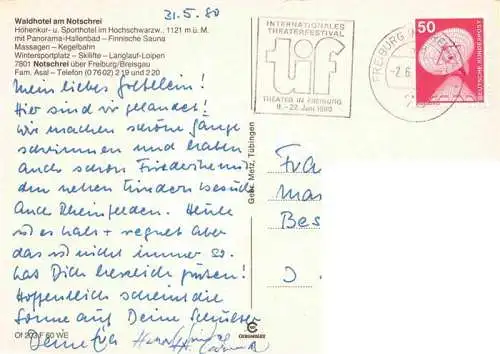 31.5.80
Waldhotel am Notschrei
Höhenkur- u. Sporthotel im Hochschwarzw., 1121 m ü. M.
mit Panorama-Hallenbad – Finnische Sauna
Massagen – Kegelbahn
Wintersportplatz – Skilifte – Langlauf-Loipen
7801 Notschrei über Freiburg/Breisgau
Fam. Asal – Telefon (0 76 02) 2 19 und 2 20
Mein liebes
Hier sind wir gelandet!
Wir machen schöne Gänge
schwimmen und haben
auch schon Friederike mit
den netten Kindern besucht
Auch Rheinfelden. Heute
ist es kalt + regnet aber
das ist nicht immer so.
Lass Dich herzlich grüßen!
Hoffentlich scheint die
Sonne auf Deine
Deine
INTERNATIONALES
THEATERFESTIVAL
tif
THEATER IN FREIBURG
9.–22. Juni 1980
FREIBURG
-2.6.
50
DEUTSCHE BUNDESPOST
Gebr. Metz, Tübingen
Fra
Mar
Bes
D